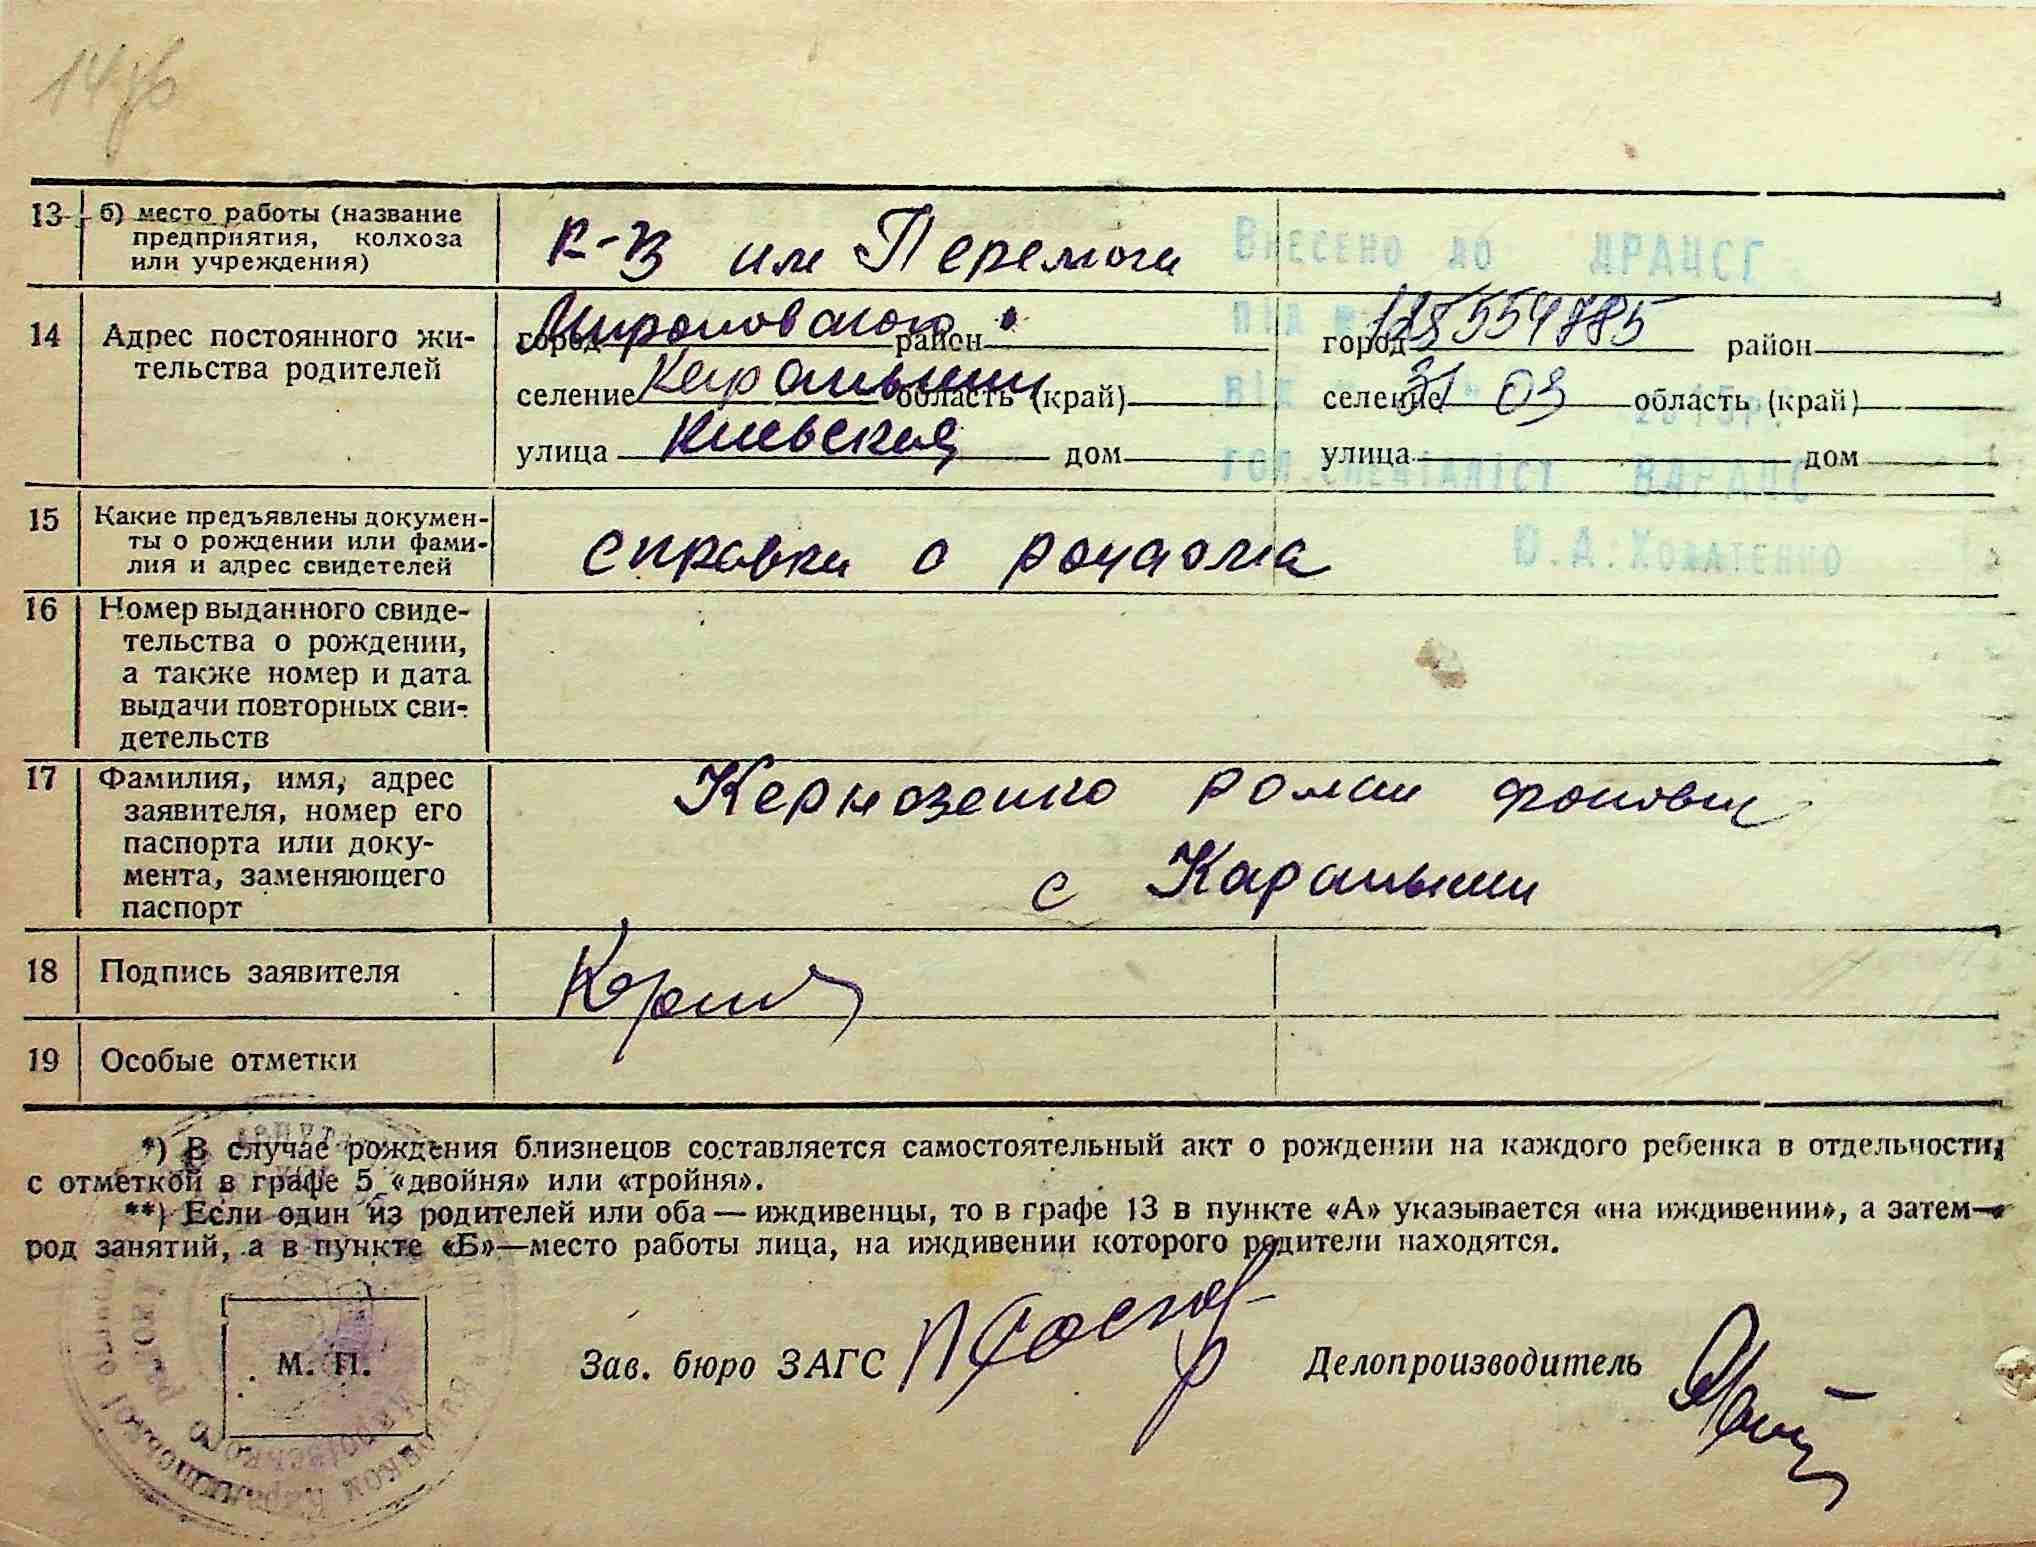 13
б) место работы (название
предприятия, колхоза
или учреждения)
К-з им Перемоги
Внесено до ДРАЦСГ
14
Адрес постоянного жи-
тельства родителей
город Мироновского район
селение Карапыши область (край)
улица Киевская дом
город район
селение область (край)
улица дом
125554885
31 03
гол.спеціаліст ВДРАЦС
15
Какие предъявлены докумен-
ты о рождении или фами-
лия и адрес свидетелей
справки о роддома
Ю.А.Хоматенко
16
Номер выданного свиде-
тельства о рождении,
а также номер и дата
выдачи повторных сви-
детельств
17
Фамилия, имя, адрес
заявителя, номер его
паспорта или доку-
мента, заменяющего
паспорт
Кернозенко роман
с Карапыши
18
Подпись заявителя
19
Особые отметки
*) В случае рождения близнецов составляется самостоятельный акт о рождении на каждого ребенка в отдельности,
с отметкой в графе 5 «двойня» или «тройня».
**) Если один из родителей или оба — иждивенцы, то в графе 13 в пункте «А» указывается «на иждивении», а затем—
род занятий, а в пункте «Б»—место работы лица, на иждивении которого родители находятся.
М. П.
Зав. бюро ЗАГС
Делопроизводитель